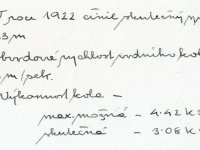 V roce 1922 činil skutečný
.3 m
obvodové rychlost vodního kol
m/sek.
Výkonnost kola -
max. možná - 4.42 k
skutečná - 3.08 k